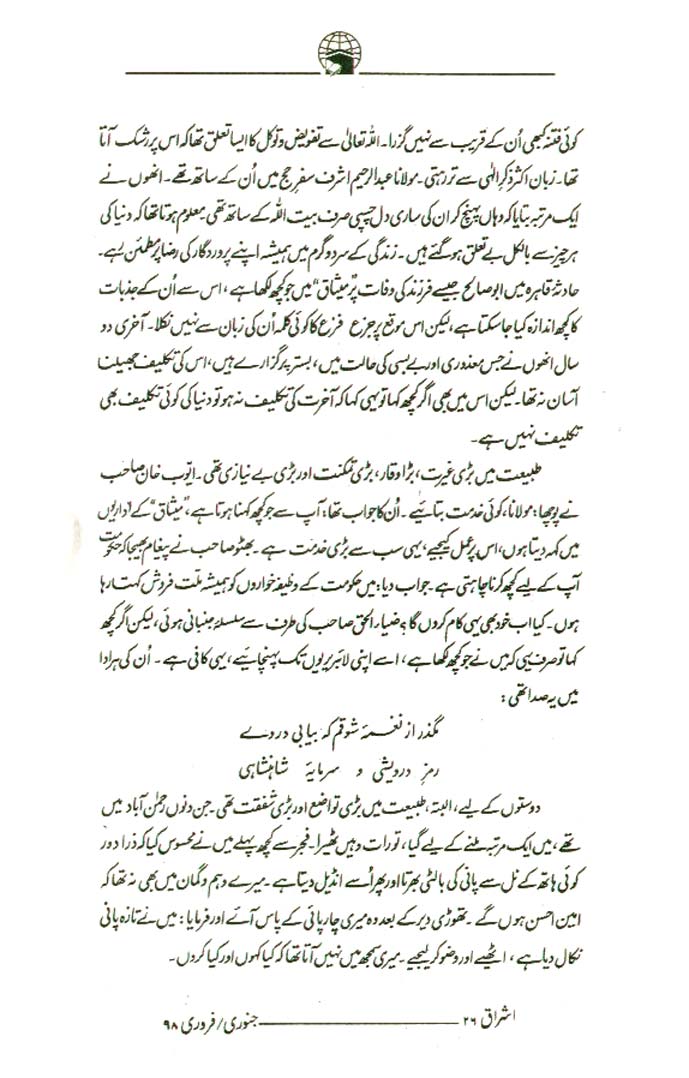 کوئی فتنہ کبھی اُن کے قریب سے نہیں گزرا۔ اللہ تعالیٰ سے تفویض و توکل کا ایسا تعلق تھا کہ اس پر رشک آتا
تھا۔ زبان اکثر ذکرِ الٰہی سے تر رہتی۔ مولانا عبدالرحیم اشرف سفرِ حج میں اُن کے ساتھ تھے۔ انھوں نے
ایک مرتبہ بتایا کہ وہاں پہنچ کر ان کی ساری دل چسپی صرف بیت اللہ کے ساتھ تھی معلوم ہوتا تھا کہ دنیا کی
ہر چیز سے بالکل بے تعلق ہو گئے ہیں۔ زندگی کے سرد و گرم میں ہمیشہ اپنے پروردگار کی رضا پر مطمئن رہے۔
حادثۂ قاہرہ میں ابو صالح جیسے فرزند کی وفات پر ”میثاق“ میں جو کچھ لکھا ہے، اس سے اُن کے جذبات
کا کچھ اندازہ کیا جا سکتا ہے، لیکن اس موقع پر جزع فزع کا کوئی کلمہ اُن کی زبان سے نہیں نکلا۔ آخری دو
سال انھوں نے جس معذوری اور بے بسی کی حالت میں، بستر پر گزارے ہیں، اس کی تکلیف جھیلنا
آسان نہ تھا۔ لیکن اس میں بھی اگر کچھ کہا تو یہی کہا کہ آخرت کی تکلیف نہ ہو تو دنیا کی کوئی تکلیف بھی
تکلیف نہیں ہے۔
طبیعت میں بڑی غیرت، بڑا وقار، بڑی تمکنت اور بڑی بے نیازی تھی۔ ایوب خان صاحب
نے پوچھا: مولانا، کوئی خدمت بتائیے۔ اُن کا جواب تھا: آپ سے جو کچھ کہنا ہوتا ہے، ”میثاق“ کے اداریوں
میں کہہ دیتا ہوں، اس پر عمل کیجیے، یہی سب سے بڑی خدمت ہے۔ بھٹو صاحب نے پیغام بھیجا کہ حکومت
آپ کے لیے کچھ کرنا چاہتی ہے۔ جواب دیا: میں حکومت کے وظیفہ خواروں کو ہمیشہ ملت فروش کہتا رہا
ہوں۔ کیا اب خود بھی یہی کام کروں گا؟ ضیاء الحق صاحب کی طرف سے سلسلہ جنبانی ہوئی، لیکن اگر کچھ
کہا تو صرف یہی کہ میں نے جو کچھ لکھا ہے، اسے اپنی لائبریریوں تک پہنچائیے، یہی کافی ہے۔ اُن کی ہر ادا
میں یہ صدا تھی:
مگذر از نغمۂ شوقم کہ بیابی در وے
رمزِ درویشی و سرمایۂ شاہنشاہی
دوستوں کے لیے، البتہ، طبیعت میں بڑی تواضع اور بڑی شفقت تھی۔ جن دنوں رحمٰن آباد میں
تھے، میں ایک مرتبہ ملنے کے لیے گیا، تو رات وہیں ٹھیرا۔ فجر سے کچھ پہلے میں نے محسوس کیا کہ ذرا دور
کوئی ہاتھ کے نل سے پانی کی بالٹی بھرتا اور پھر اُسے انڈیل دیتا ہے۔ میرے وہم و گمان میں بھی نہ تھا کہ
امین احسن ہوں گے۔ تھوڑی دیر کے بعد وہ میری چارپائی کے پاس آئے اور فرمایا: میں نے تازہ پانی
نکال دیا ہے، اٹھیے اور وضو کر لیجیے۔ میری سمجھ میں نہیں آتا تھا کہ کیا کہوں اور کیا کروں۔
اشراق ۲۶ ــــــــ جنوری/ فروری ۹۸